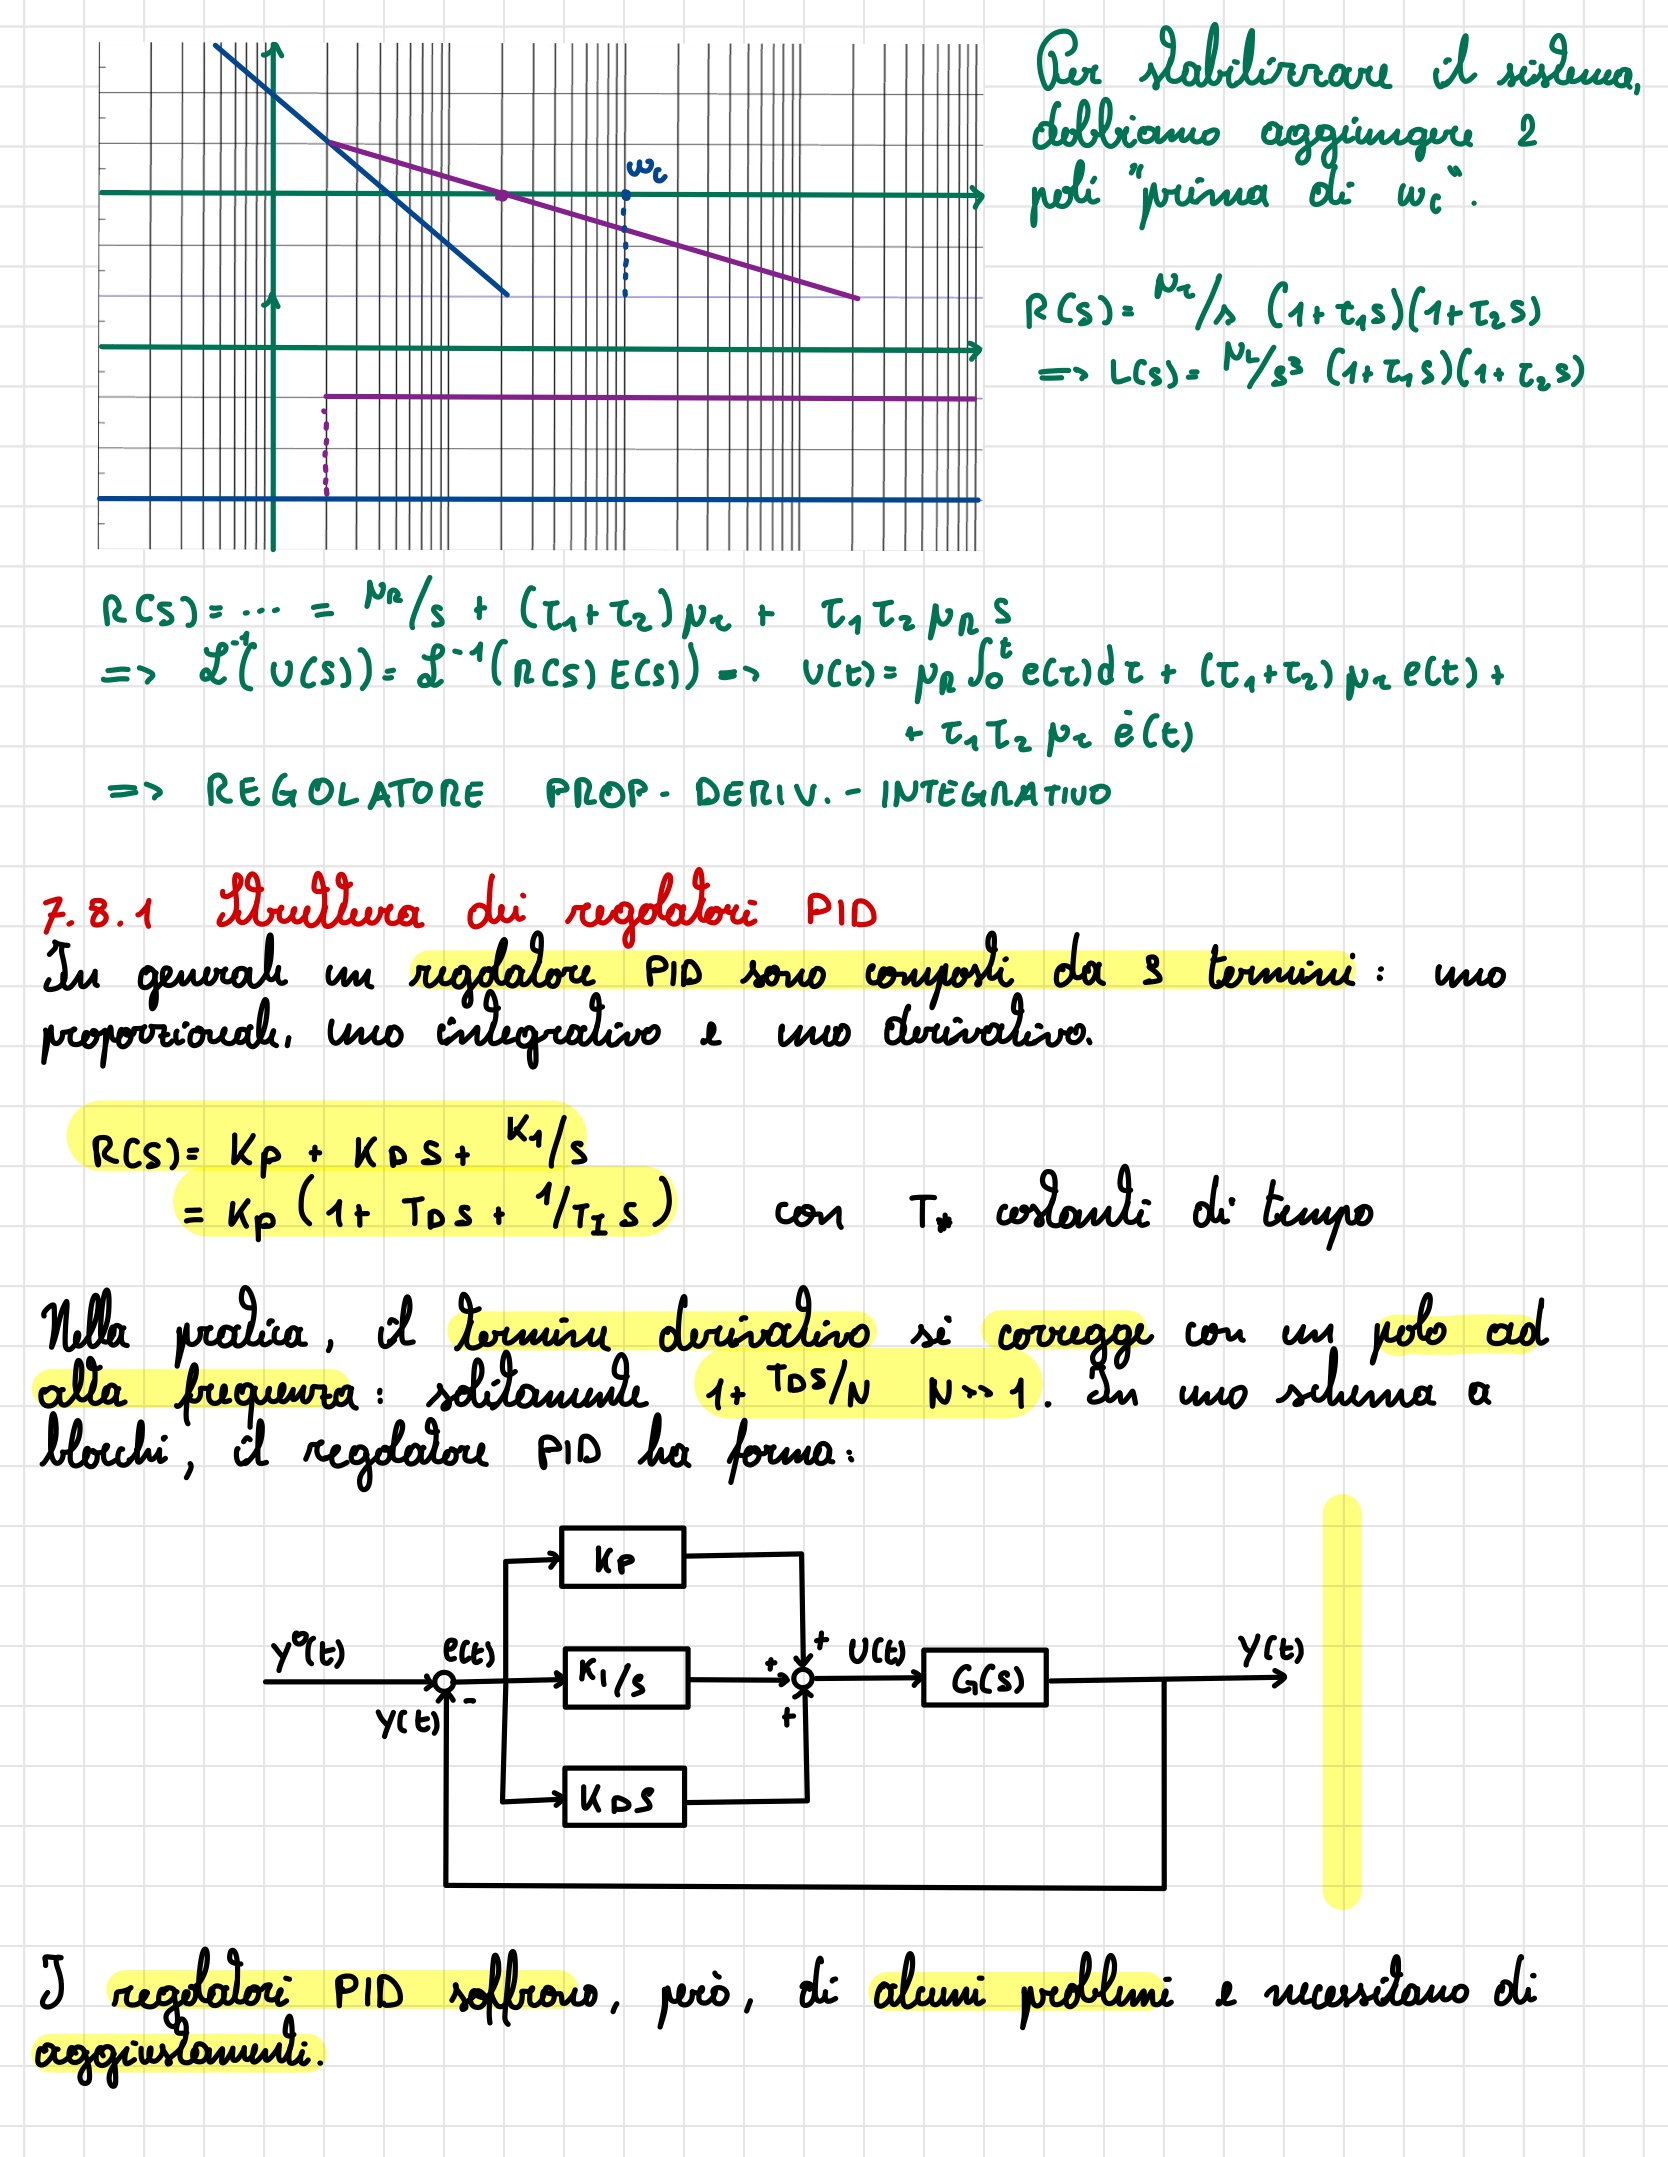 Per stabilizzare il sistema,
dobbiamo aggiungere 2
poli "prima di ωc".
R(s) = μr/s (1+τ1s)(1+τ2s)
=> L(s) = μL/s³ (1+τ1s)(1+τ2s)
ωc
R(s) = ... = μR/s + (τ1+τ2)μr + τ1τ2 μR s
=> ℒ⁻¹(U(s)) = ℒ⁻¹(R(s)E(s)) => U(t) = μR ∫₀ᵗ e(τ)dτ + (τ1+τ2) μr e(t) +
+ τ1τ2 μr ė(t)
=> REGOLATORE PROP- DERIV.- INTEGRATIVO
7.8.1 Struttura dei regolatori PID
In generale un regolatore PID sono composti da 3 termini: uno
proporzionale, uno integrativo e uno derivativo.
R(s) = KP + KD s + K1/s
= KP (1 + TD s + 1/TI s) con T* costanti di tempo
Nella pratica, il termine derivativo si corregge con un polo ad
alta frequenza: solitamente 1+ TDs/N N>>1. In uno schema a
blocchi, il regolatore PID ha forma:
KP
Y⁰(t) e(t) K1/s + + U(t) G(s) Y(t)
Y(t) - +
KDS
I regolatori PID soffrono, però, di alcuni problemi e necessitano di
aggiustamenti.